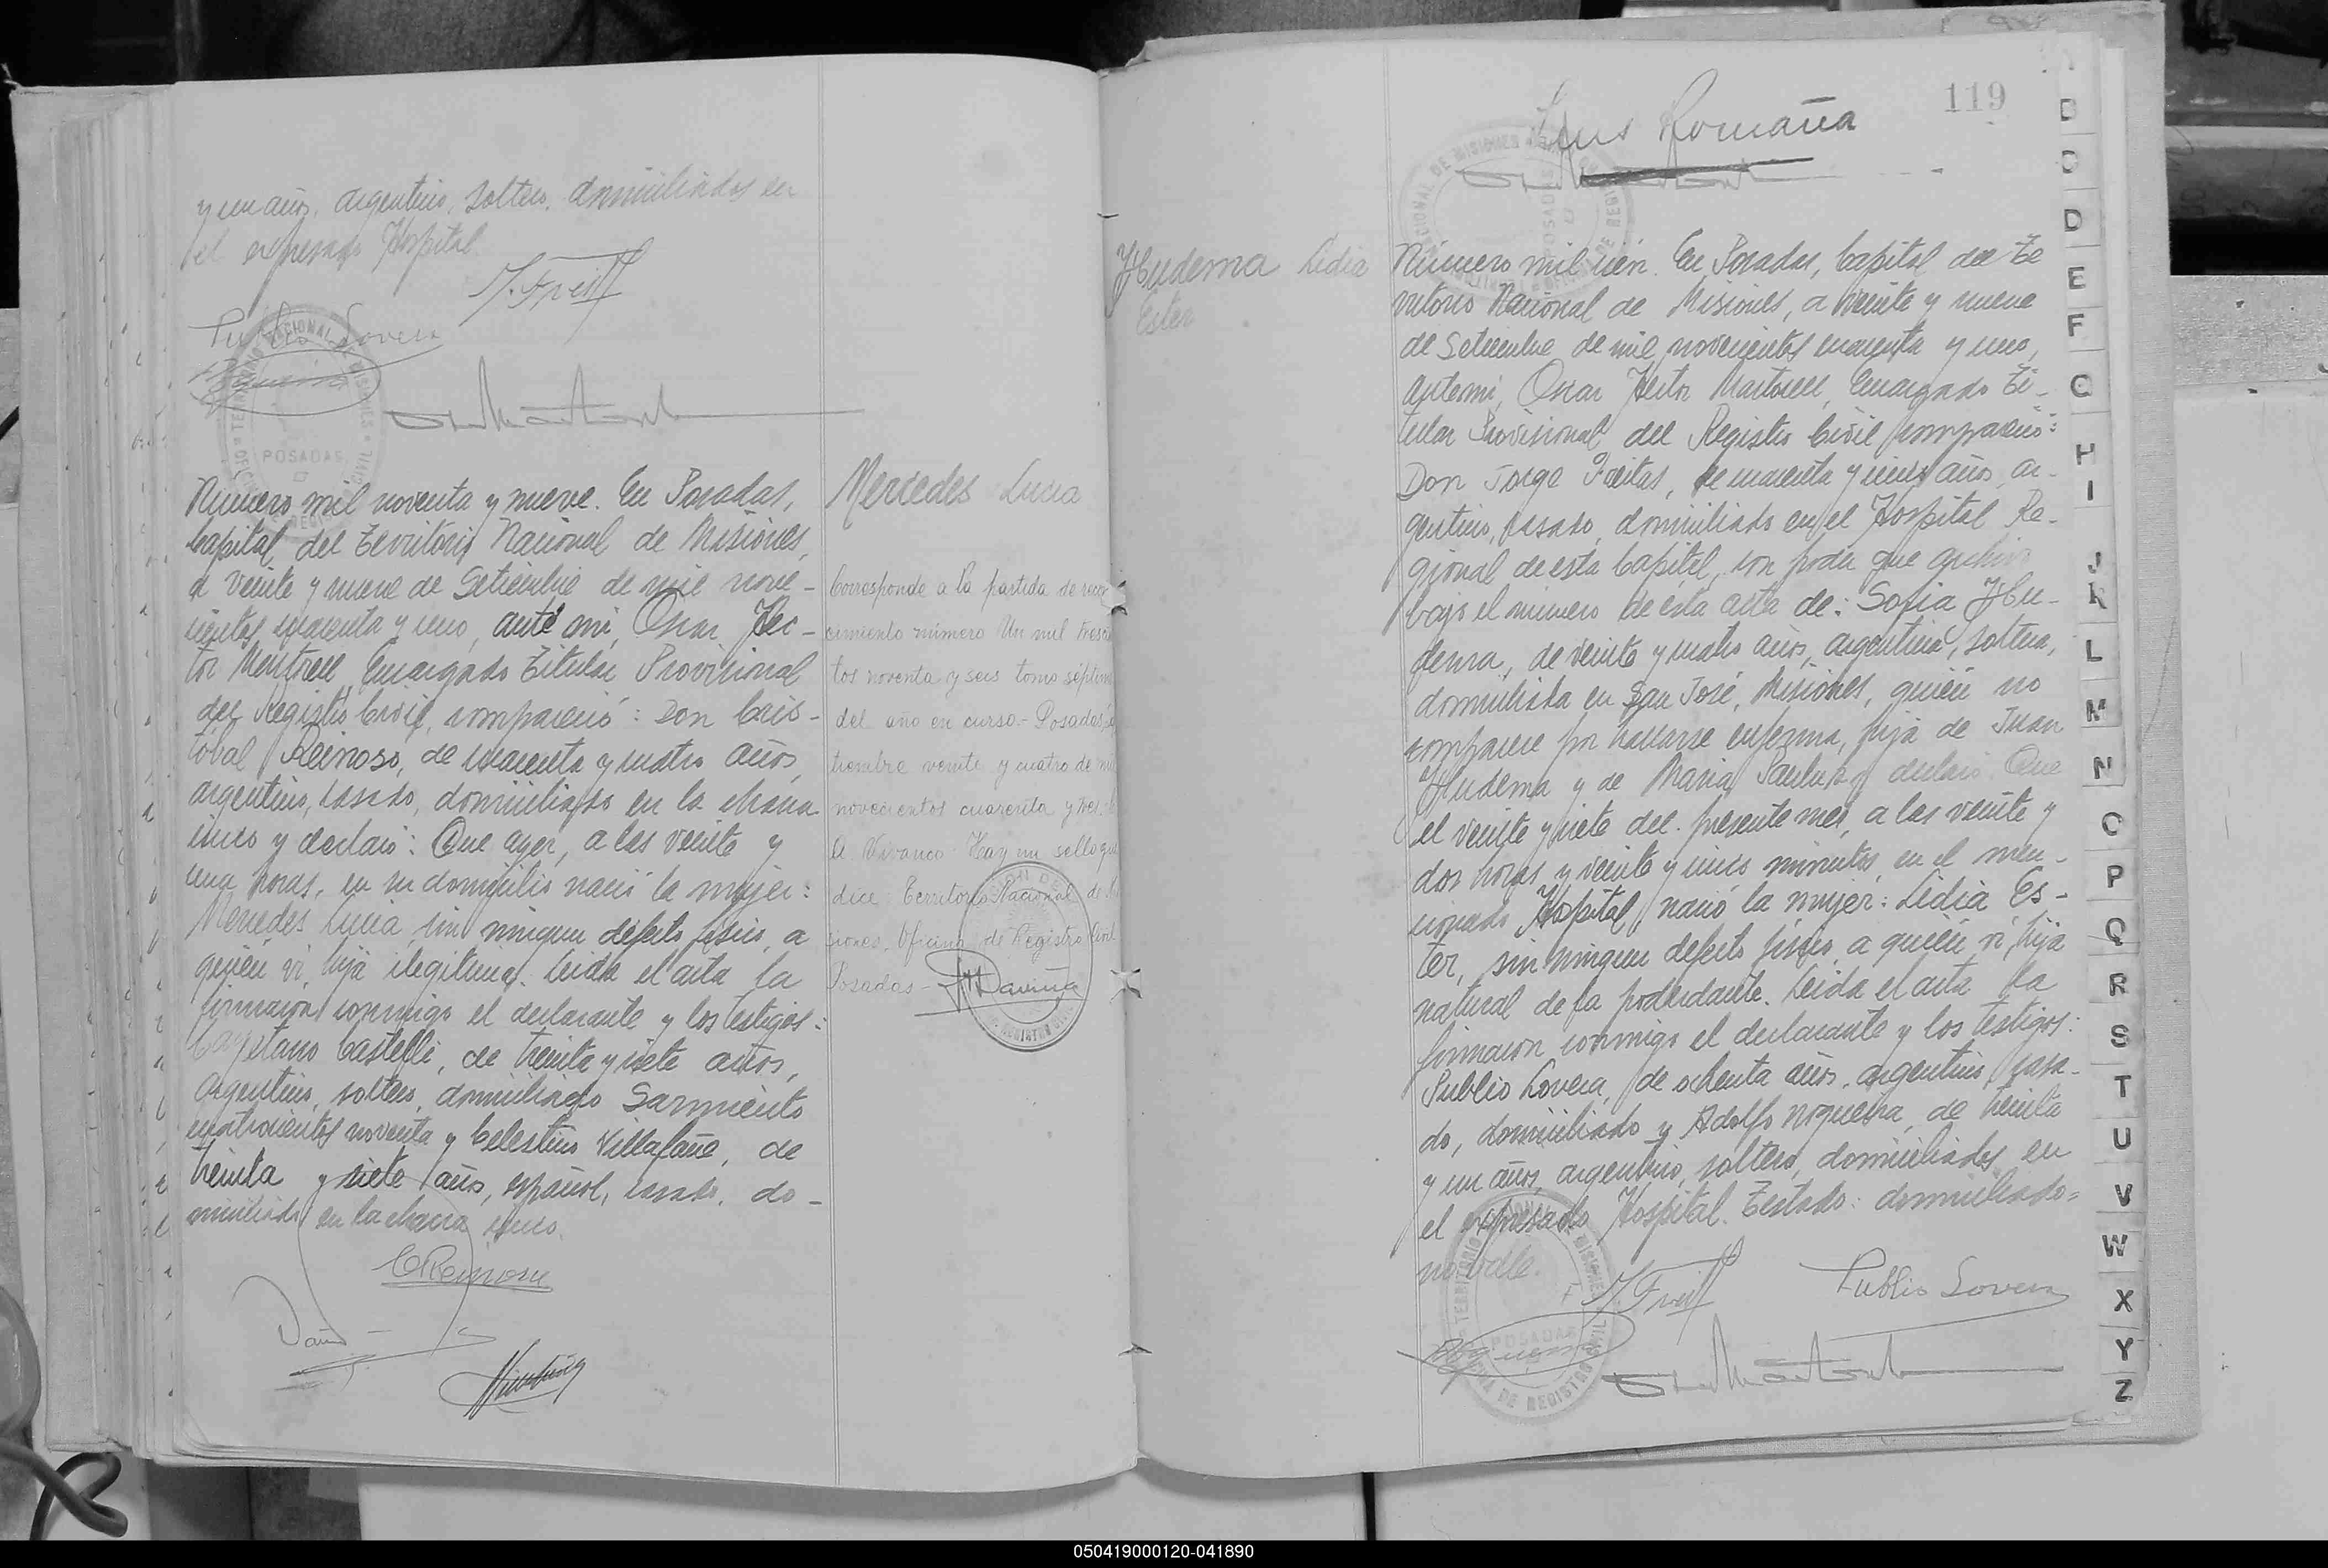 y un años, argentino, soltero, domiciliados en
el expresado Hospital.
J. Freit
Publio Lovera
ANoguera
TERRITORIO NACIONAL DE MISIONES
POSADAS
Número mil noventa y nueve. En Posadas,
Capital del Territorio Nacional de Misiones,
a veinte y nueve de Setiembre de mil nove-
cientos cuarenta y uno, ante mi, Oscar Hec-
tor Martorell, Encargado Titular Provisional
del Registro Civil, compareció: Don Cris-
tobal Reinoso, de cuarenta y cuatro años,
argentino, casado, domiciliado en la chacra
cinco y declaró: Que ayer, a las veinte y
una horas, en su domicilio nació la mujer:
Mercedes Lucia, sin ningun defecto fisico, a
quién vi, hija ilegitima. Leida el acta la
firmaron conmigo el declarante y los testigos:
Cayetano Castelli, de treinta y siete años,
argentino, soltero, domiciliado Sarmiento
cuatrocientos noventa y Celestino Villafañe, de
treinta y siete años, español, casado, do-
miciliado en la chacra cinco.
CReinoso
Mercedes Lucia
Corresponde a la partida de recono
cimiento número Un mil trescien
tos noventa y seis tomo séptimo
del año en curso.- Posadas, se
tiembre veinte y cuatro de mil
novecientos cuarenta y tres.
A. Vivanco - Hay un sello que
dice: Territorio Nacional de Mi
siones, Oficina de Registro Civil
Posadas -
HDaviña
119
Luis Romaña
Hudema Lidia
Ester
Número mil cién. En Posadas, Capital del Te
rritorio Nacional de Misiones, a veinte y nueve
de Setiembre de mil novecientos cuarenta y uno,
ante mi, Oscar Hector Martorell, Encargado Ti-
tular Provisional del Registro Civil compareció:
Don Jorge Freitas, de cuarenta y cinco años, ar-
gentino, casado, domiciliado en el Hospital Re-
gional de esta Capital, con poder que archivo
bajo el número de esta acta de: Sofia Hu-
dema, de veinte y cuatro años, argentina, soltera,
domiciliada en San José, Misiones, quién no
comparece por hallarse enferma, hija de Juan
Hudema y de Maria Pauluk y declaró: Que
el veinte y siete del presente mes, a las veinte y
dos horas y veinte y cinco minutos, en el men-
cionado Hospital, nació la mujer: Lidia Es-
ter, sin ningun defecto fisico, a quién vi, hija
natural de la poderdante. Leida el acta la
firmaron conmigo el declarante y los testigos:
Publio Lovera, de ochenta años, argentino, casa-
do, domiciliado y Adolfo Noguera, de treinta
y un años, argentino, soltero, domiciliados en
el expresado Hospital. Testado: domiciliado=
no vale.
J. Freit
Publio Lovera
ANoguera
POSADAS
B
C
D
E
F
G
H
I
J
K
L
M
N
O
P
Q
R
S
T
U
V
W
X
Y
Z
050419000120-041890